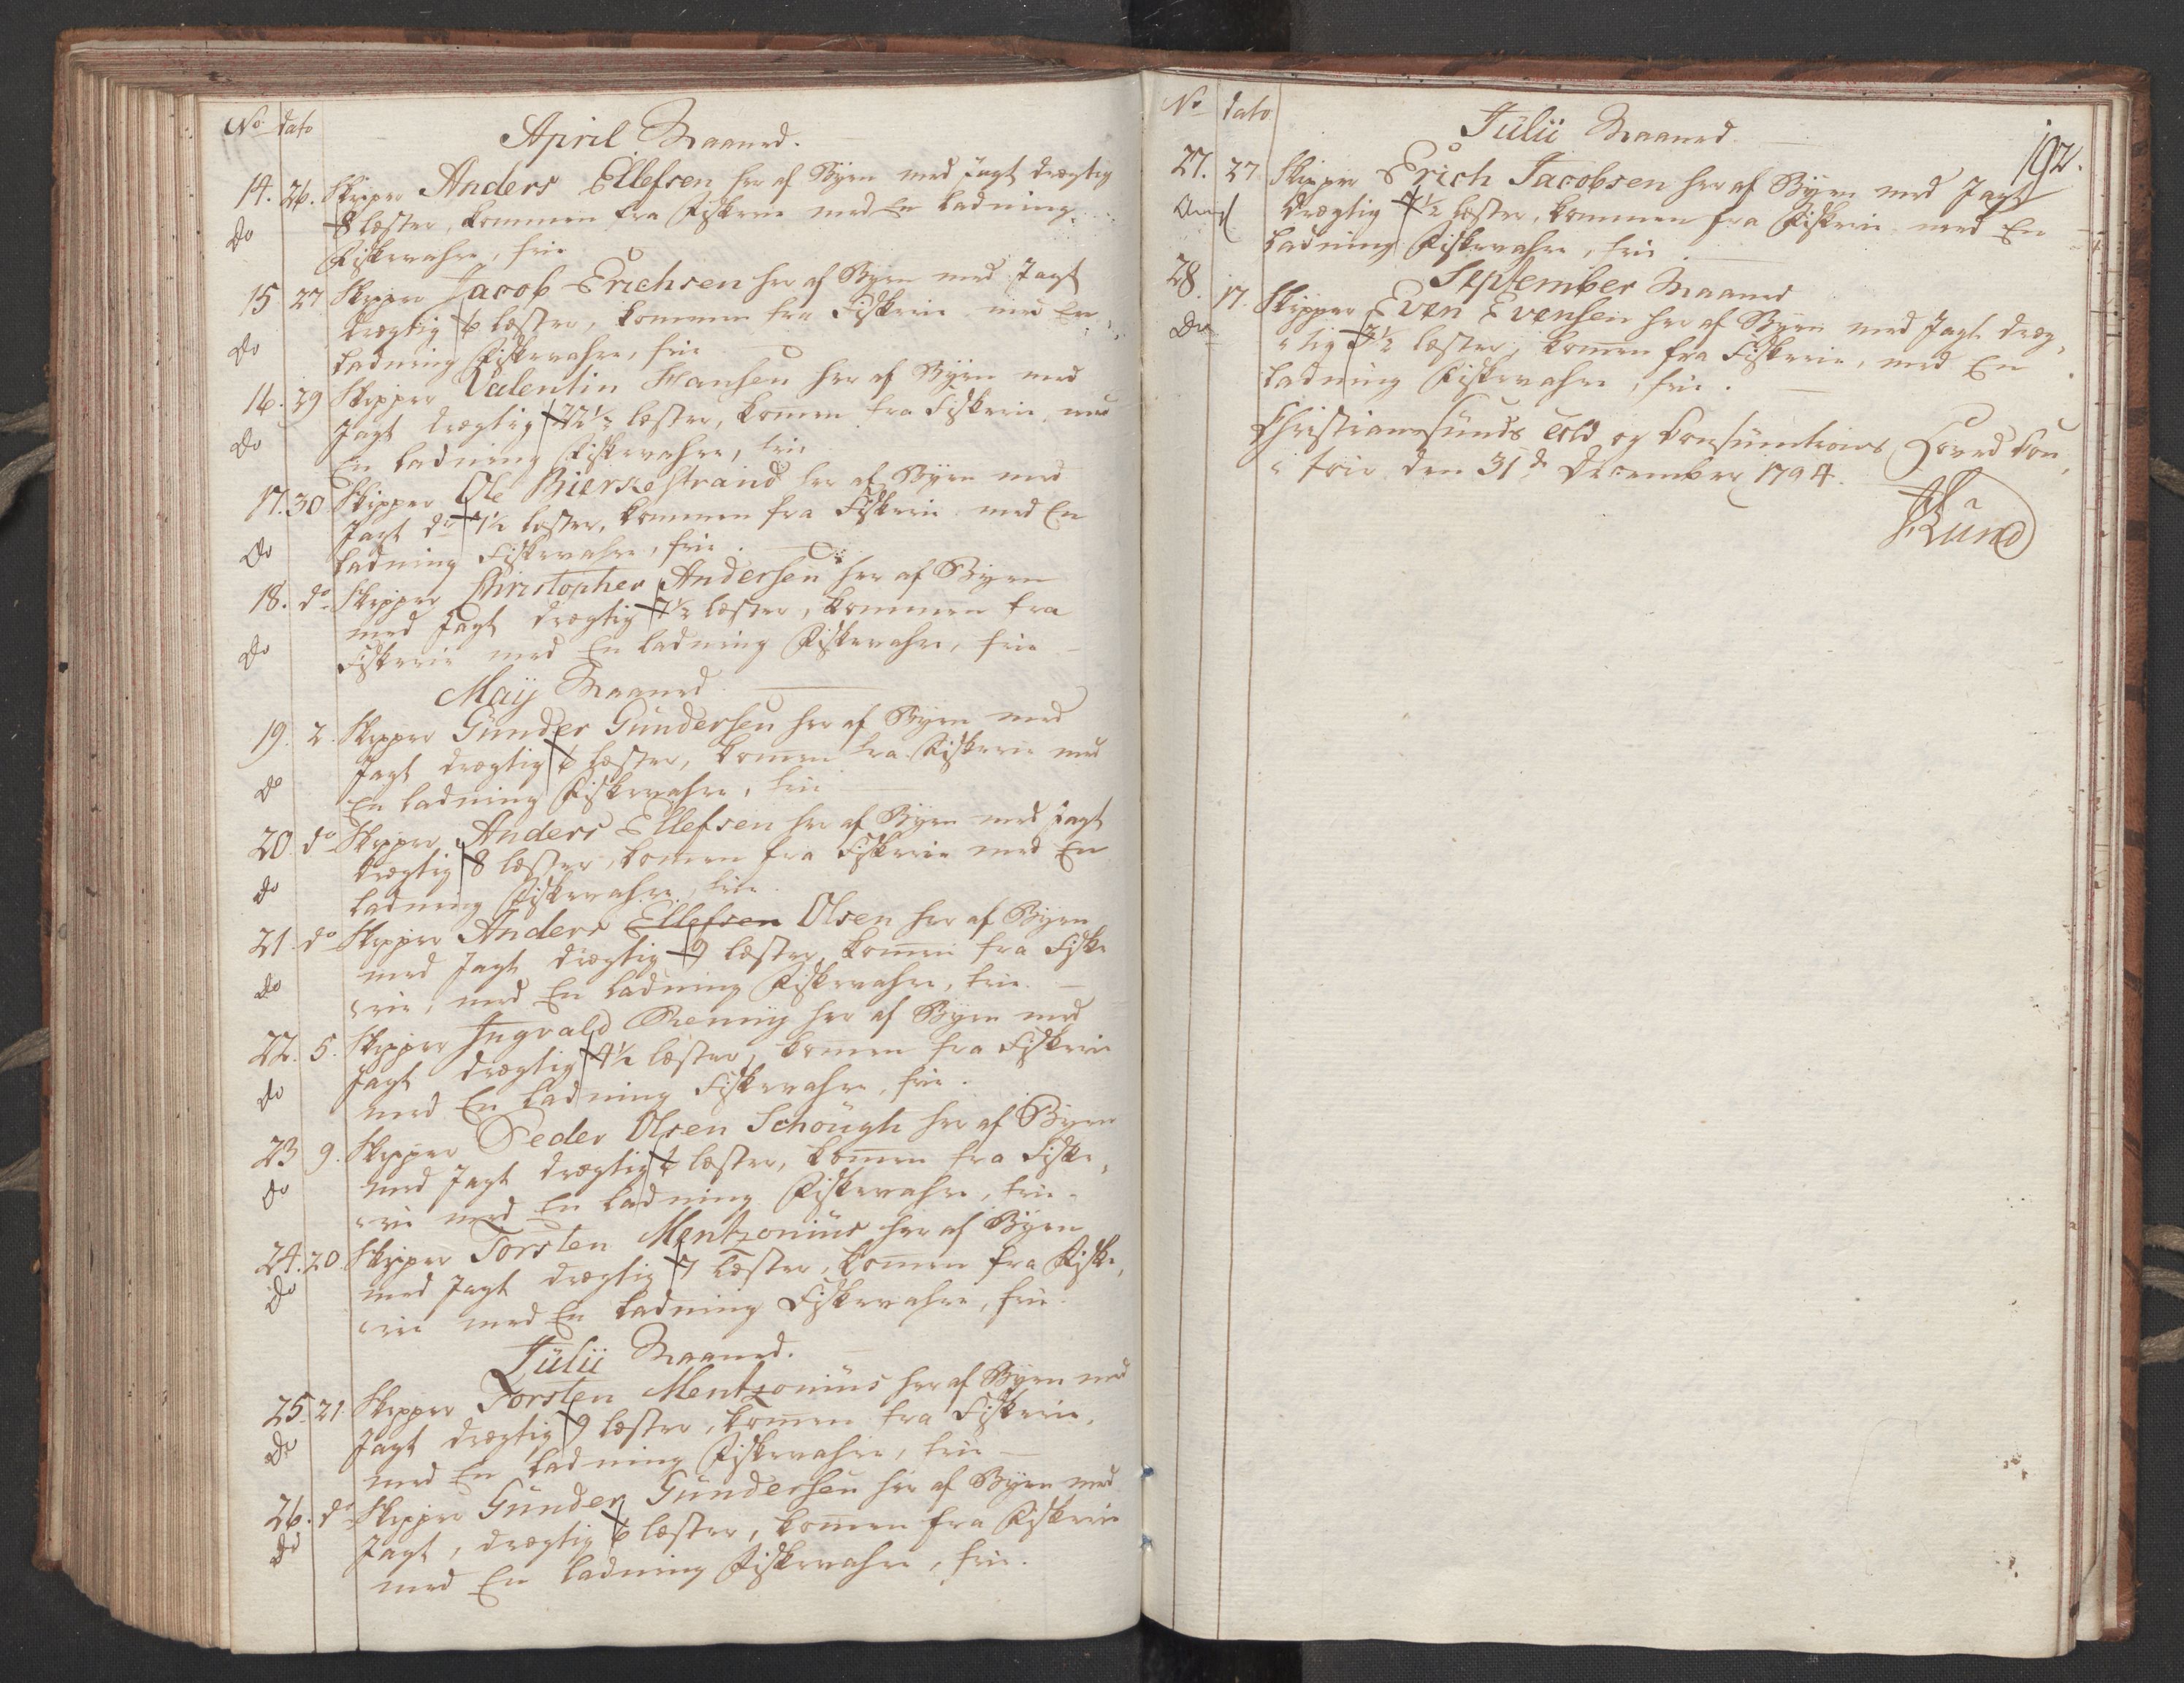 No dato
April Maaned.
14. 26. Skipper Anders Ellefsen her af Byen med Jagt drægtig
do 8 læster, kommen fra Fiskerie med En Ladning
Fiskevahre, frie
15 27 Skipper Jacob Erichsen her af Byen med Jagt
drægtig 6 læster, kommen fra Fiskerie med En
do Ladning Fiskevahre, frie
16. 29 Skipper Valentin Hansen her af Byen med
do Jagt drægtig læster, komen fra Fiskerie med
En Ladning Fiskevahre, frie
17. 30 Skipper Ole Bierkestrand her af Byen med
Jagt do 7½ læster, kommen fra Fiskerie med En
do Ladning Fiskevahre, frie.
18. do Skipper Christopher Andersen her af Byen
med Jagt drægtig 7½ læster, kommen fra
do Fiskerie med En Ladning Fiskevahre, frie
Maij Maaned
19. 2. Skipper Gunder Gundersen her af Byen med
Jagt drægtig 6 læster, komen fra Fiskerie med
do En Ladning Fiskevahre, frie
20 do Skipper Anders Ellefsen her af Byen med Jagt
drægtig 8 læster, komen fra Fiskerie med En
do Ladning Fiskevahre, frie.
21. do Skipper Anders Ellefsen Olsen her af Byen
med Jagt drægtig 9 læster, komen fra Fiske
do rie, med En Ladning Fiskevahre, frie.
22. 5. Skipper Ingvald Rennig her af Byen med
Jagt drægtig 4½ læster, komen fra Fiskerie
do med En Ladning Fiskevahre, frie.
23 9. Skipper Peder Olsen Schough her af Byen
med Jagt drægtig 6 læster, komen fra Fiske,
do rie med En Ladning Fiskevahre, frie.
24. 20 Skipper Torsten Mentzonius her af Byen
do med Jagt drægtig 7 læster, komen fra Fiske,
rie med En Ladning Fiskevahre, frie.
Julii Maaned.
25. 21. Skipper Torsten Mentzonius her af Byen med
do Jagt drægtig 9 læster, komen fra Fiskerie,
med En Ladning Fiskevahre, frie
26. do Skipper Gunder Gundersen her af Byen med
do Jagt, drægtig 6 læster, komen fra Fiskerie
med En Ladning Fiskevahre, frie.
No dato
Julii Maaned
192.
27. 27 Skipper Erich Jacobsen her af Byen med Jagt
drægtig 7½ læster, kommen fra Fiskerie med En
Ladning Fiskevahre, frie.
September Maaned
28. 17. Skipper Even Evensen her af Byen med Jagt dræg,
do tig 7½ læster, komen fra Fiskerie, med En
Ladning Fiskevahre, frie.
Christiansunds Told og Consumtions Hoved Con,
toir den 31de December 1794.
Lund